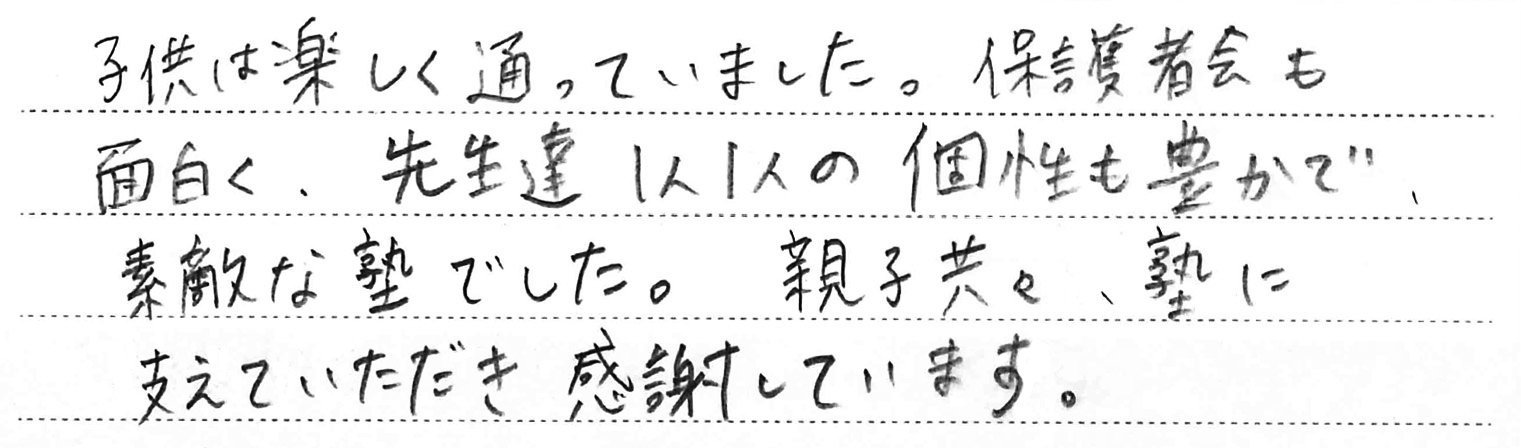 子供は楽しく通っていました。保護者会も
面白く、先生達1人1人の個性も豊かで、
素敵な塾でした。 親子共々、塾に
支えていただき感謝しています。